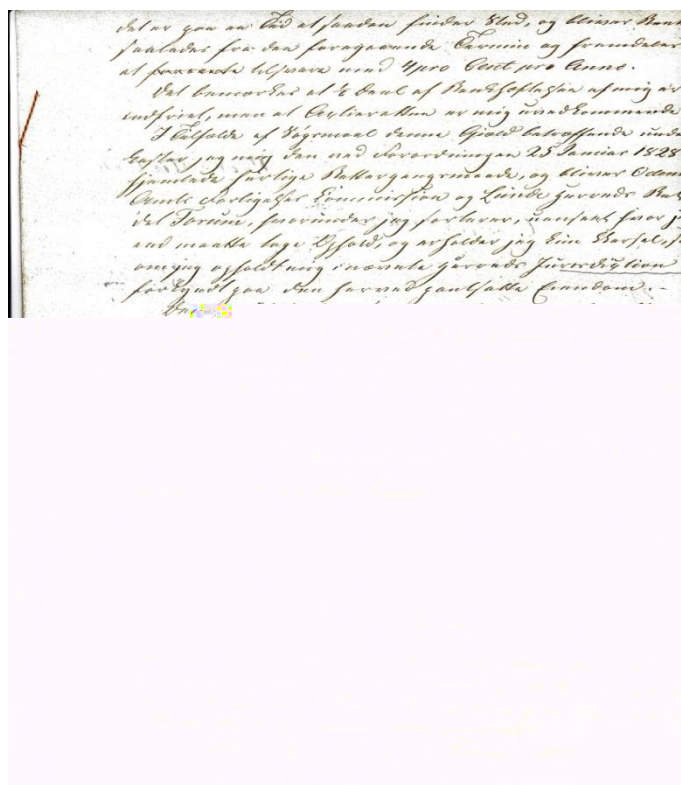 det er paa en Tid at saadan finder Sted, og bliver Rent
saaledes fra den foregaaende Termin og fremdeles
at forrente tilsvare med 4 pro Cent pro Anno.
Det bemærkes at ½ Deel af Bankhæftelsen af mig er
indfriet, men at Actieretten er mig uvedkommende
I Tilfælde af Søgsmaal denne Gjæld betræffende unde
kaster jeg mig den ved Forordningen 25 Januar 1828
hjemlede hurtige Rettergangsmaade, og bliver Oden
Amts Forligelses Commission og Lunde Herreds Ret
det Forum, hvorunder jeg sorterer, uanseet hvor j
end maatte tage Ophold, og erholder jeg Kun Varsel, s
om jeg opholdt mig i nævnte Herreds Jurisdiction
forkyndt paa den herved pantsatte Eiendom.-